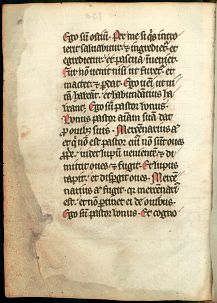 Ego sū ostiū. Per me si q̄s intro
ierit saluabitur ⁊ ingredietur ⁊
egredietur ⁊ pascua īueniet.
Fur nō uenit nisi ut furet̄ ⁊
mactet ⁊ ꝑdat. Ego ueni ut ui
tā habeāt ⁊ habundātius ha
beant. Ego sū pastor bonus.
Bonus pastor aīam suā dat
ꝓ ouibꝰ suis. Mercēnarius aūt
et qͥ nō est pastor cuiꝰ nō sūt oues
ꝓpͥe. uidet lupū uenientē ⁊ di
mittit oues ⁊ fugit. Et lupus
rapit ⁊ disꝑgit oues. Mercē
narius aūt fugit. qꝛ mercēnariꝰ
est ⁊ nō ꝑtinet ei de ouibus.
Ego sū pastor bonus. Et cogno